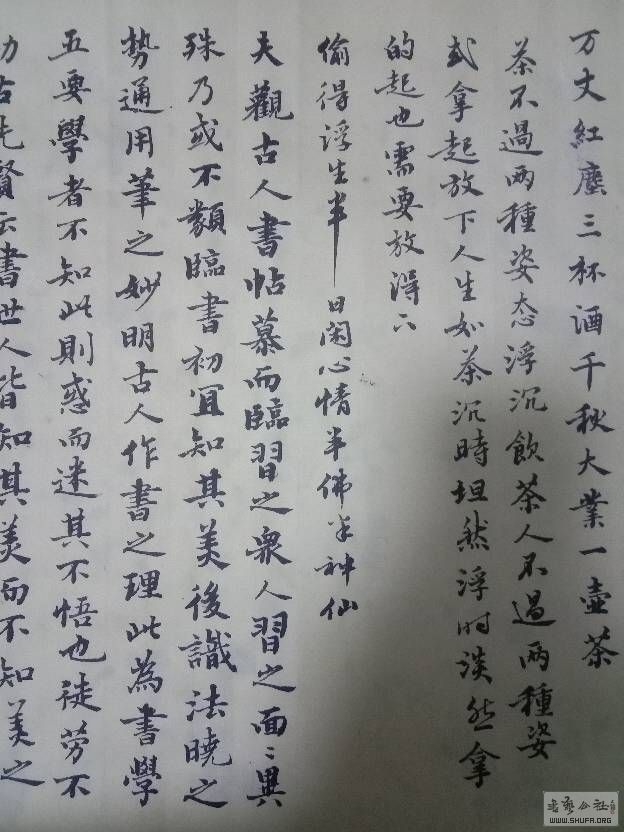 万丈紅塵三杯酒千秋大業一壶茶
茶不過两種姿态浮沉飲茶人不過两種姿
式拿起放下人生如茶沉時坦然浮时淡然拿
的起也需要放得下
偷得浮生半日闲心情半佛半神仙
夫觀古人書帖慕而臨習之衆人習之面〻異
殊乃或不類臨書初宜知其美後識法曉之
勢通用筆之妙明古人作書之理此為書學
五要學者不知此則惑而迷其不悟也徒劳不
功古先賢云書世人皆知其美而不知美之
WWW.SHUFA.ORG